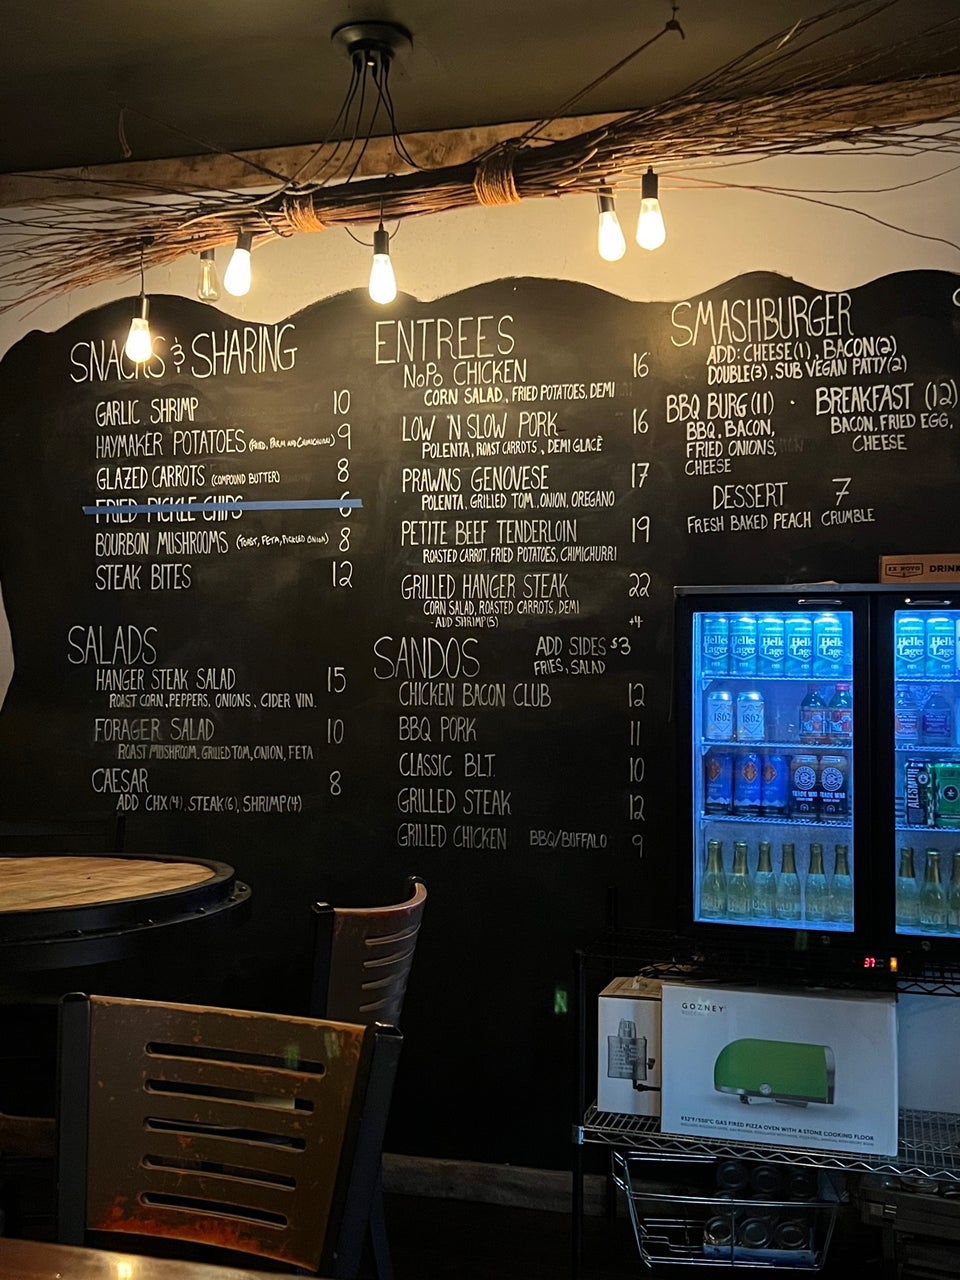 SNACKS & SHARING
GARLIC SHRIMP 10
HAYMAKER POTATOES (FRIED, PARM AND CHIMICHURRI) 9
GLAZED CARROTS (COMPOUND BUTTER) 8
FRIED PICKLE CHIPS 6
BOURBON MUSHROOMS (TOAST, FETA, PICKLED ONION) 8
STEAK BITES 12
SALADS
HANGER STEAK SALAD 15
ROAST CORN, PEPPERS, ONIONS, CIDER VIN.
FORAGER SALAD 10
ROAST MUSHROOM, GRILLED TOM, ONION, FETA
CAESAR 8
ADD CHX(4), STEAK(6), SHRIMP(4)
ENTREES
NoPo CHICKEN 16
CORN SALAD, FRIED POTATOES, DEMI
LOW 'N SLOW PORK 16
POLENTA, ROAST CARROTS, DEMI GLACÉ
PRAWNS GENOVESE 17
POLENTA, GRILLED TOM, ONION, OREGANO
PETITE BEEF TENDERLOIN 19
ROASTED CARROT, FRIED POTATOES, CHIMICHURRI
GRILLED HANGER STEAK 22
CORN SALAD, ROASTED CARROTS, DEMI
- ADD SHRIMP(5) +4
SANDOS ADD SIDES $3
FRIES, SALAD
CHICKEN BACON CLUB 12
BBQ PORK 11
CLASSIC BLT 10
GRILLED STEAK 12
GRILLED CHICKEN BBQ/BUFFALO 9
SMASHBURGER
ADD: CHEESE(1), BACON(2)
DOUBLE(3), SUB VEGAN PATTY(2)
BBQ BURG (11) · BREAKFAST (12)
BBQ, BACON,
FRIED ONIONS,
CHEESE
BACON, FRIED EGG,
CHEESE
DESSERT 7
FRESH BAKED PEACH CRUMBLE
EX NOVO DRINK
Helles Lager Helles Lager Helles Lager Helles Lager Helles Lager Helles Lager Helles Lager
1862 1862
ALESMITH
37
GOZNEY
932°F/500°C GAS FIRED PIZZA OVEN WITH A STONE COOKING FLOOR